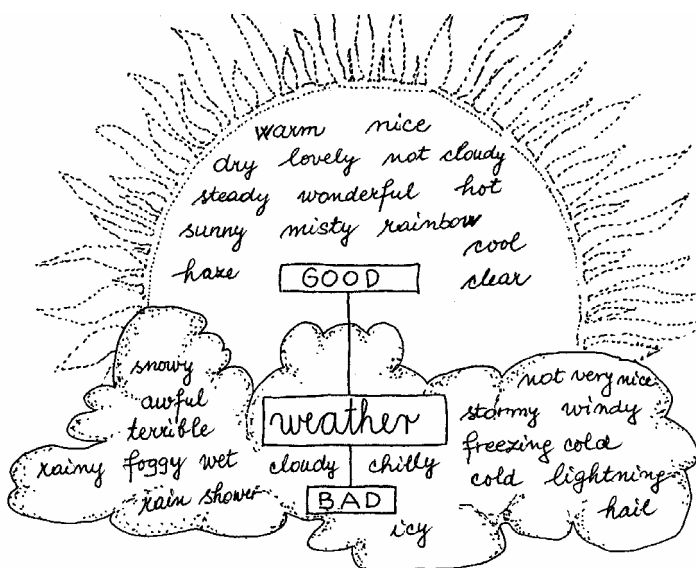 warm nice
dry lovely not cloudy
steady wonderful hot
sunny misty rainbow
cool
haze GOOD clear
snowy
awful
terrible
rainy foggy wet
rain shower
weather
cloudy chilly
BAD
icy
not very nice
stormy windy
freezing cold
cold lightning
hail